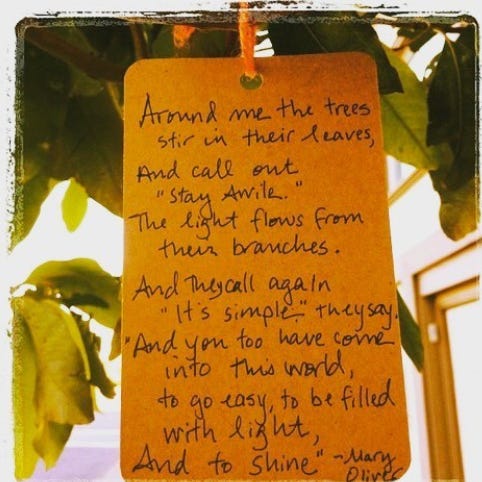 Around me the trees
stir in their leaves,
And call out
"Stay Awile."
The light flows from
their branches.
And they call again
"It's simple" they say.
"And you too have come
into this world,
to go easy, to be filled
with light,
And to shine" -Mary
Oliver